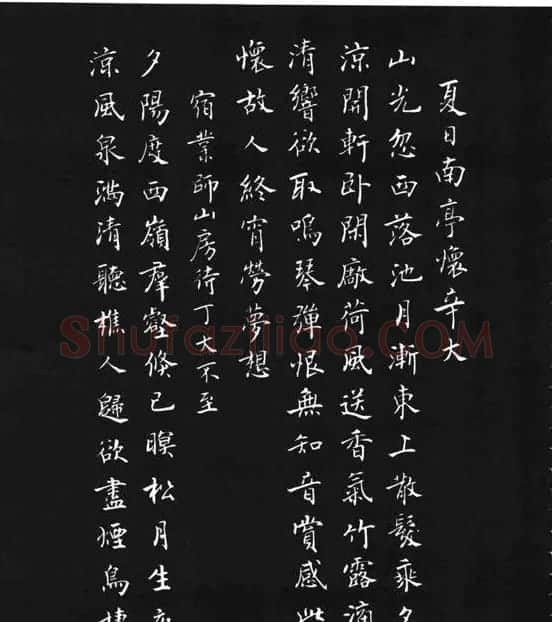 夏日南亭懷辛大
山光忽西落池月漸東上散髮乘夕
涼開軒臥閑敞荷風送香氣竹露滴
清響欲取鳴琴彈恨無知音賞感此
懷故人終宵勞夢想
宿業師山房待丁大不至
夕陽度西嶺群壑倏已暝松月生夜
涼風泉滿清聽樵人歸欲盡煙鳥棲
Shufaziliao.com